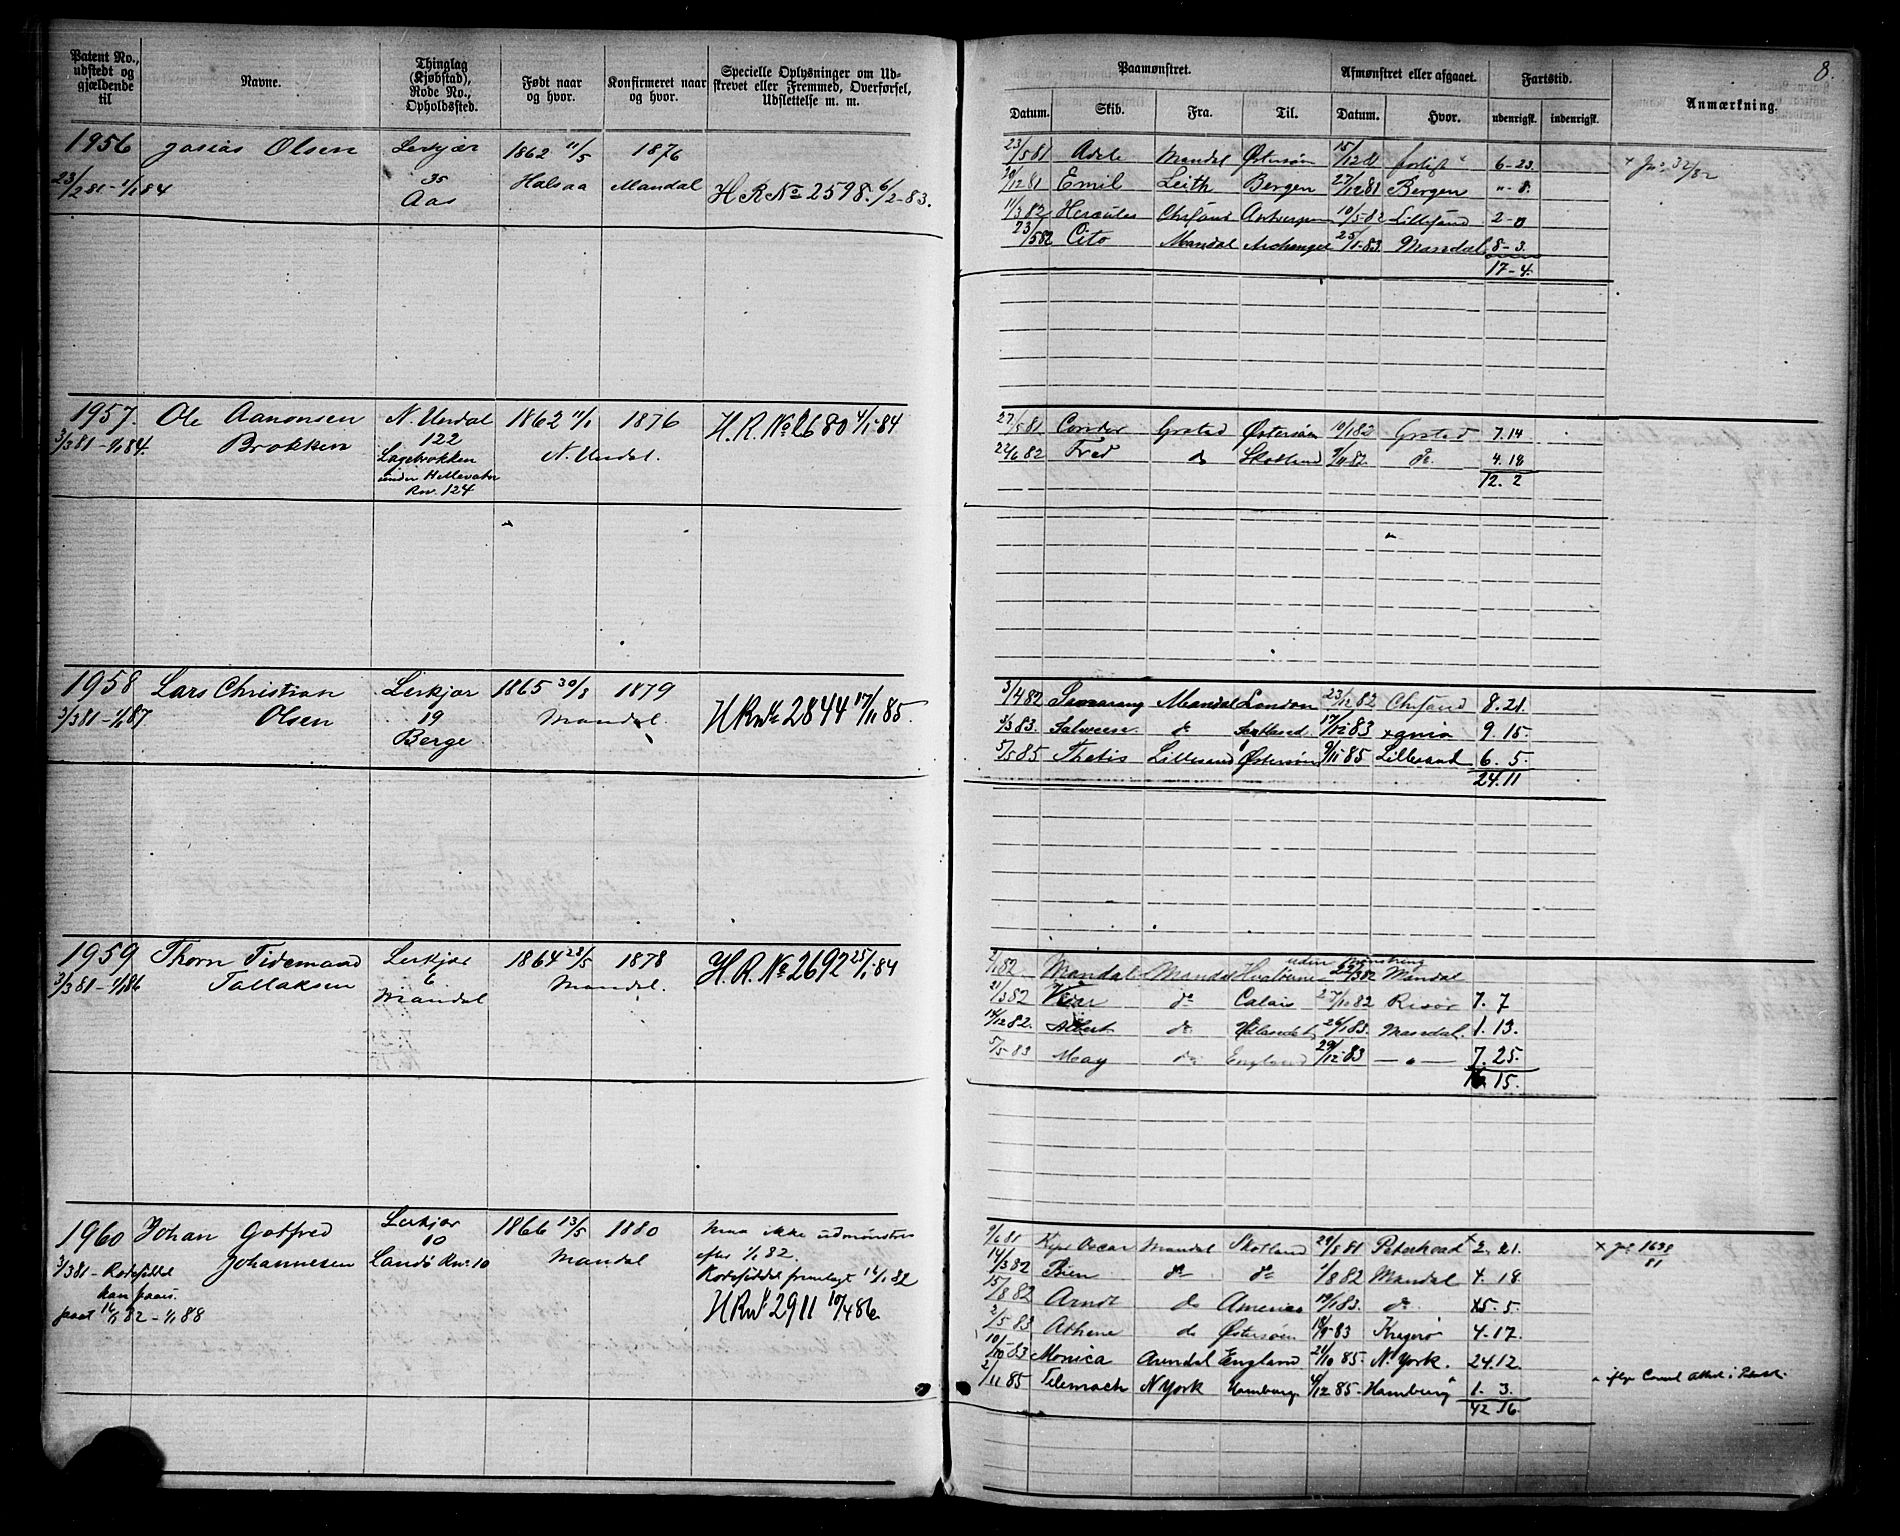 8.
Patent No., udstedt og gjældende til
Navne.
Thinglag (Kjøbstad), Rode No., Opholdssted.
Født naar og hvor.
Konfirmeret naar og hvor.
Specielle Oplysninger om Udskrevet eller Fremmed, Overførsel, Udslettelse m. m.
Paamønstret.
Afmønstret eller afgaaet.
Fartstid.
Anmærkning.
Datum. Skib. Fra. Til. Datum. Hvor. udenrigsk. indenrigsk.
1956 Josias Olsen Lerkjær 1862 11/5 1876
23/2 81 - 1/1 84 35 Halsaa Mandal H R No 2598. 6/2-83.
Aas
23/5 81 Adele Mandal Østersøn 15/12 81 6-23.
20/12 81 Emil Leith Bergen 27/12 81 Bergen "-8.
11/3 82 Hercules Chrsand Antwerpen 10/5-82 Lillesand 2-0
23/5 82 Cito Mandal Archangel 25/1-83. Mandal 8-3.
17-4.
1957. Ole Aanonsen N. Undal 1862 11/1 1876 H.R. No 2680 4/1-84
3/3 81 - 1/1 84. Brokken 122 N. Undal.
Lagebrokken
under Hellevatn
Rn. 124
27/5 81 Condor Grstad Østersøn 10/1 82 Grstad 7.14
22/6 82 Fred do Skotland 9/11 82. do. 4.18
12. 2
1958 Lars Christian Lerkjær 1865 30/3 1879
3/3 81 - 1/1 87 Olsen 19 Mandal. H R No 2844 17/11 85.
Berge
3/4 82 Samarang Mandal London 23/12 82 Chrsand 8.21.
1/3 83. Salveese do Skotland 17/12 83 xania 9.15.
5/5 85 Thetis Lillesand Østersøn 9/11 85 Lillesand 6. 5.
24.11
1959 Thorn Tidemand Lerkjær 1864 28/5 1878 H. R. No 2692 25/1-84
3/3 81 - 1/1 86 Tallaksen 6 Mandal.
Mandal
uden mønstring
2/1 82. Mandal Mandal 22/3 82 Mandal
21/3 82 do Calais 27/11 82 Risør 7. 7
14/12 82. Albert do 26/1 83. Mandal. 1.13.
5/5-83 May do England 29/12-83 —"— 7.25.
16.15.
1960 Johan Gotfred Lerkjær 1866 13/5 1880 maa ikke udmønstres
3/3 81 - Rodeseddel Johannesen 10 Mandal efter 1/1 82.
kan paaes. Landø Rn. 10 Rodeseddel fremlagt 14/1 82
paat 14/1 82 - 1/1 88 H R No 2911 10/4 86.
9/6 81 Kong Oscar Mandal Skotland 29/8 81 Peterhead x 2. 21. x Jno 1638/81
14/3 82 Bien do do 1/8 82 Mandal 4. 18.
15/8 82 Arndt do America 19/1 83. do. x5. 5.
2/5-83 Athene do Østersøen 18/9-83 Kragerø 4-17.
10/10-83 Monica Arendal England 21/10 85. N. York. 24.12.
2/11 85 Telemach N York Hamburg 4/12 85- Hamburg 1. 3.
42 16.